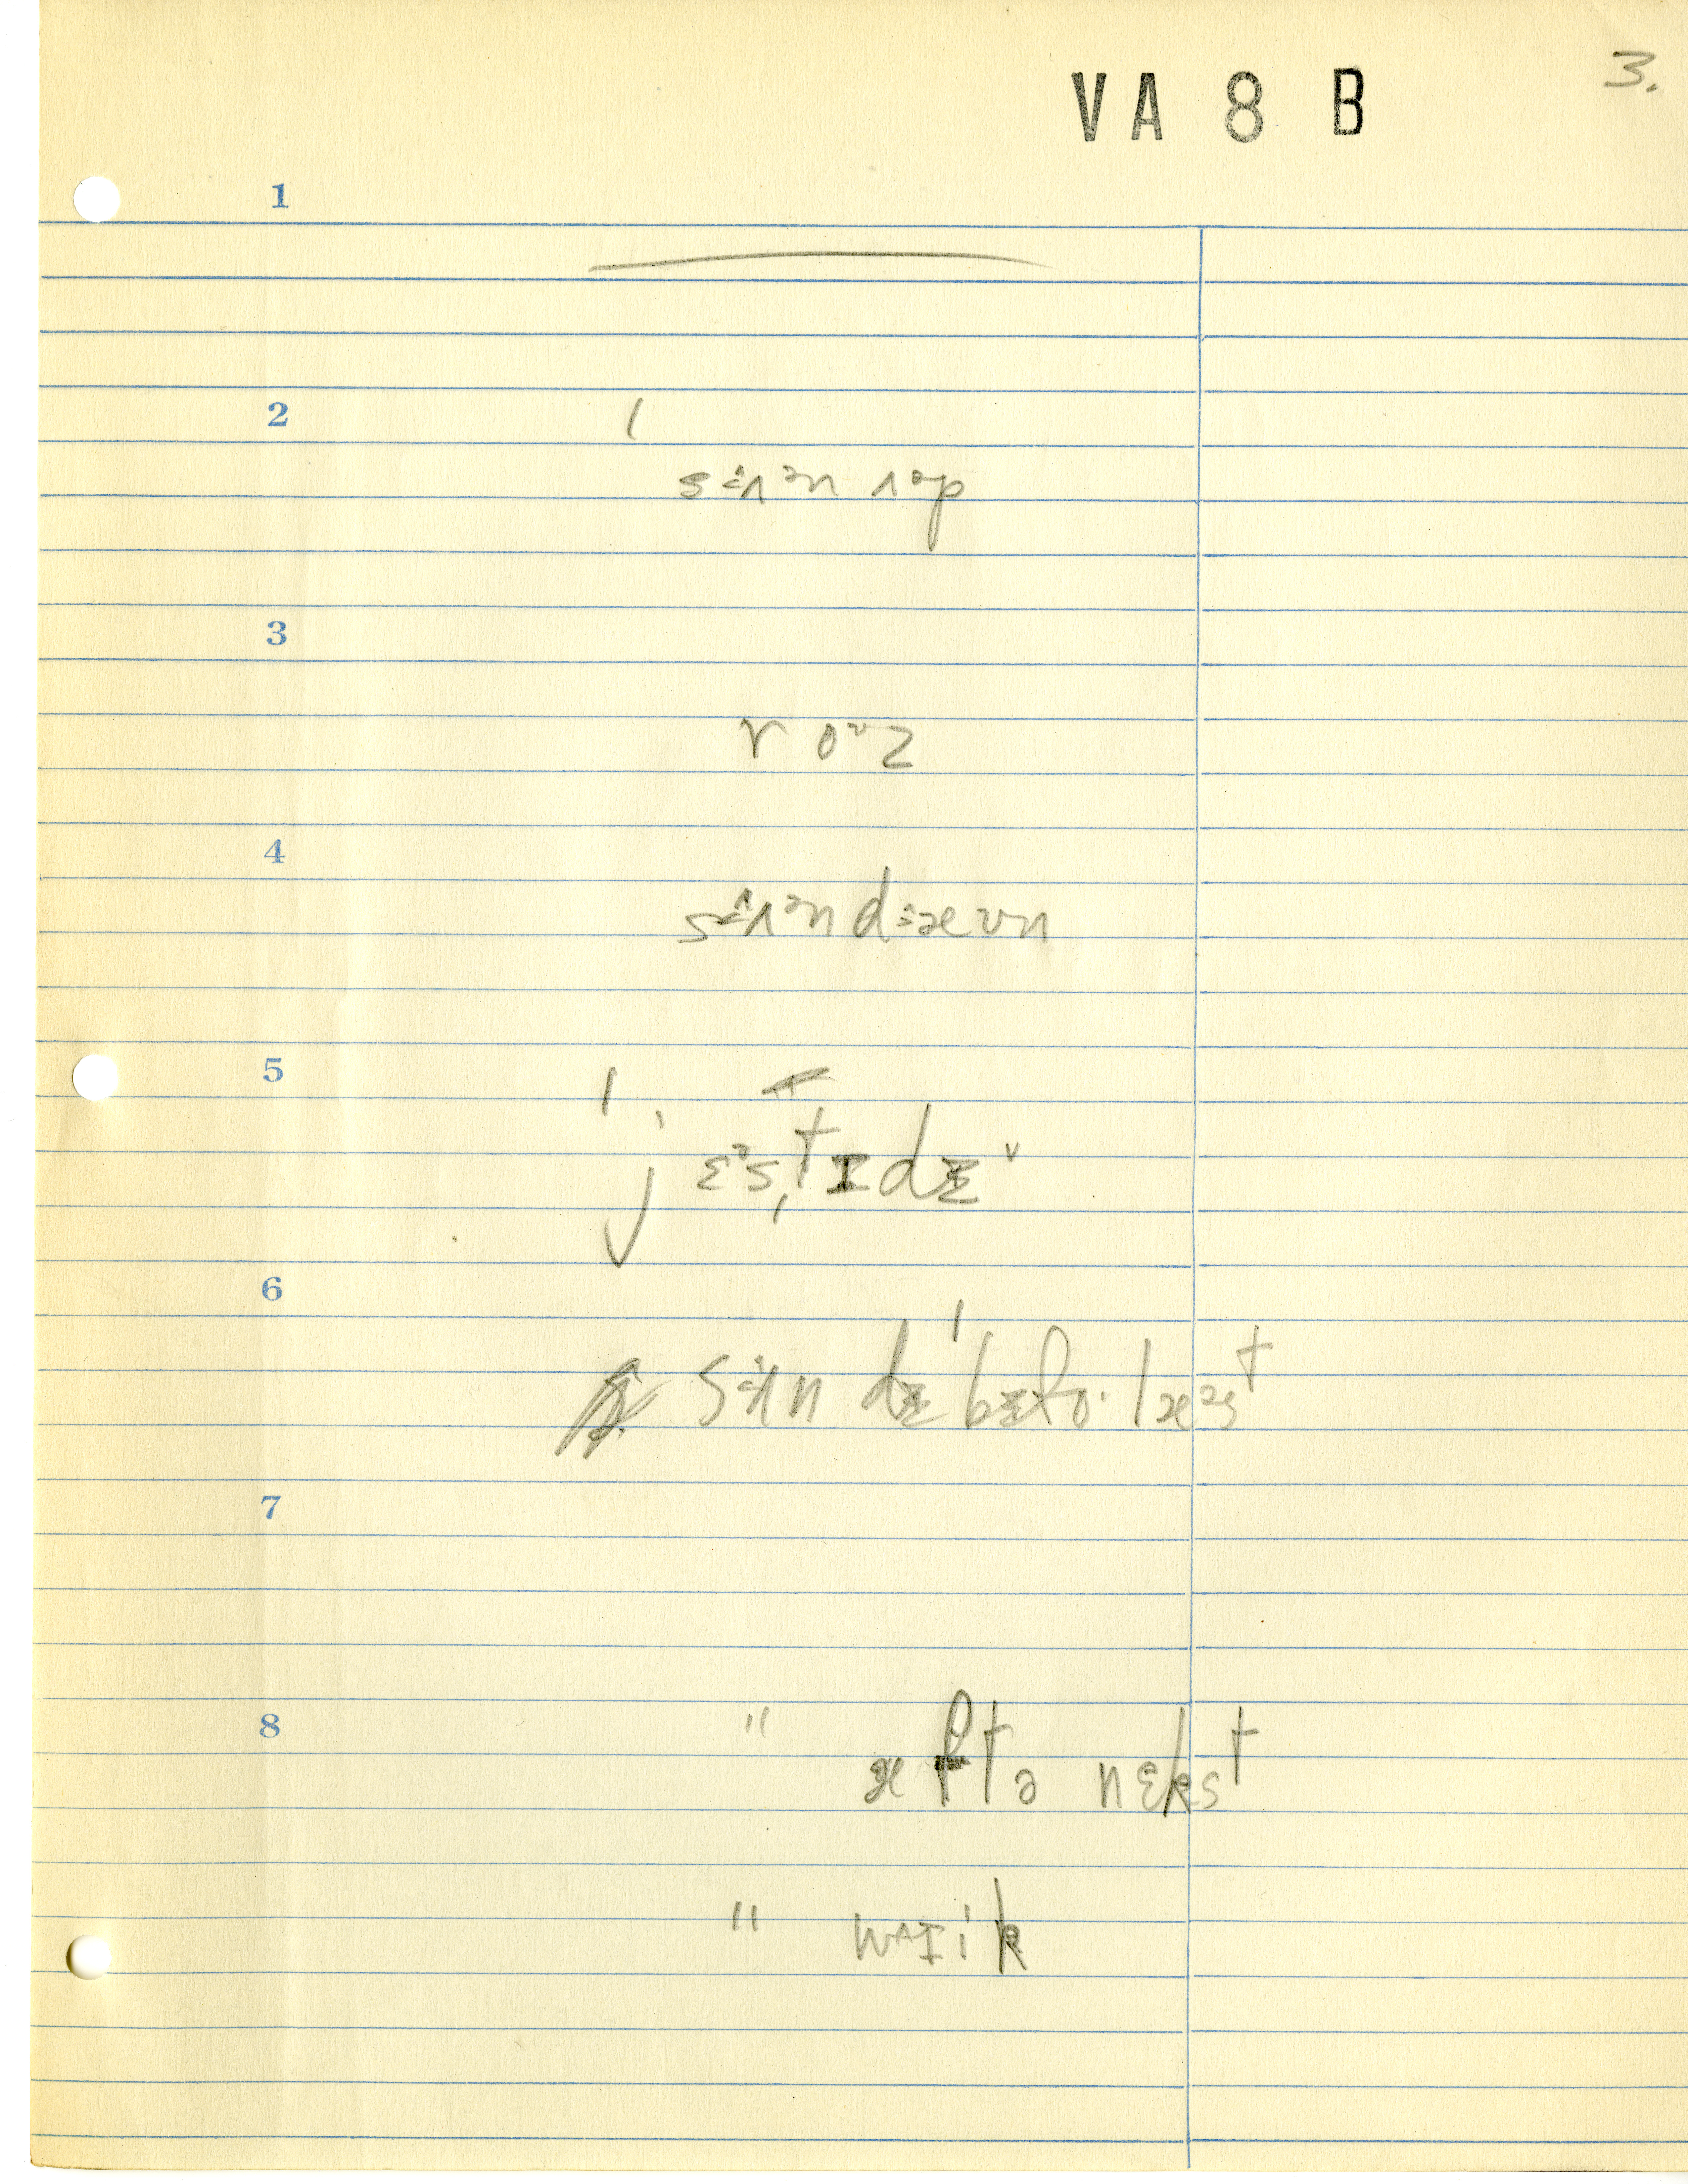 VA 8 B
3.
1
2
sʌᵊn ʌᵊp
3
r oᶷz
4
sʌᵊn dæʊn
5
jɛᵊstɪdɪ
6
sʌn dɪ bɪfo· læᵊst
7
8
" æftə nɛkst
" wɪik